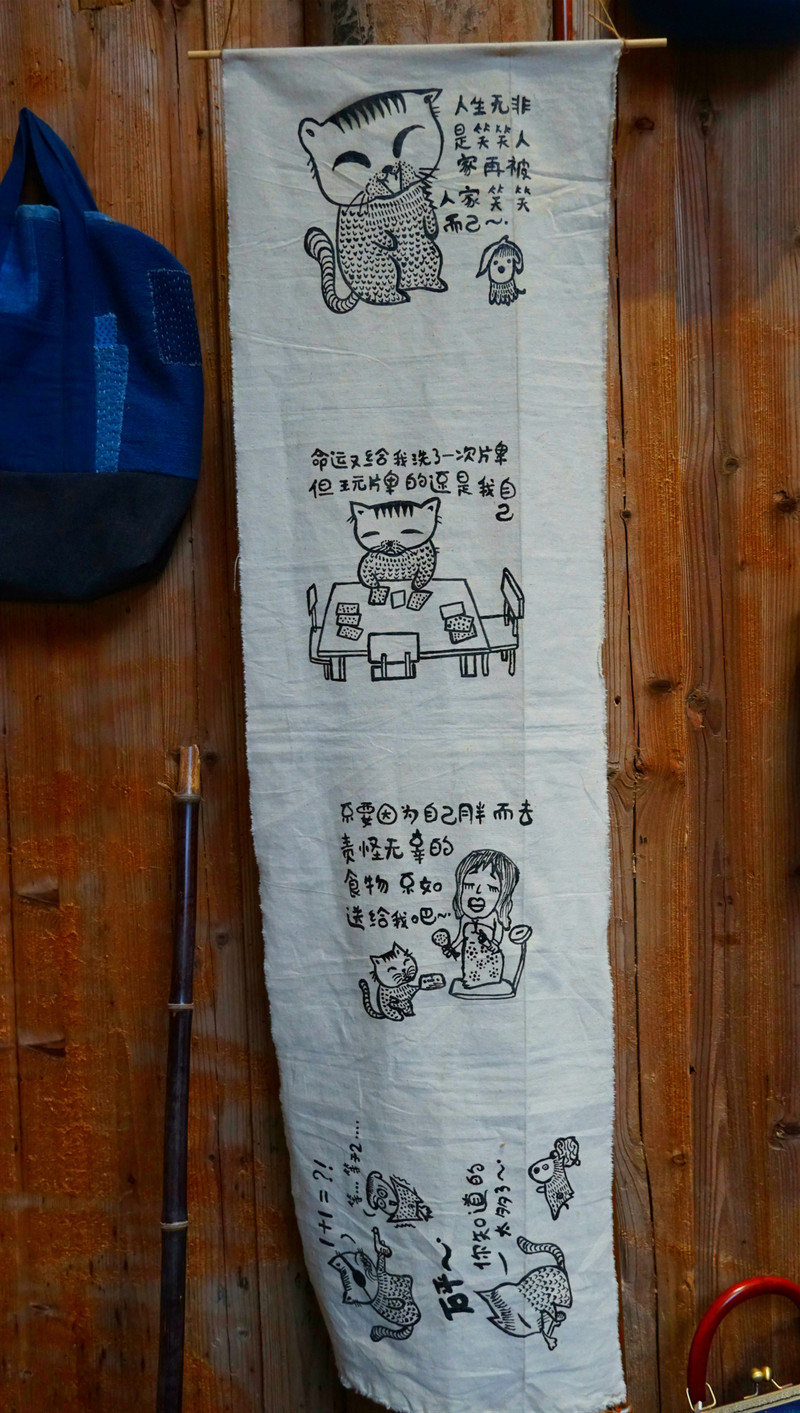 人生无非
是笑笑人
家再被
人家笑笑
而己~.
命运又给我洗了一次牌
但玩牌的还是我自
己
不要因为自己胖而去
责怪无辜的
食物 不如
送给我吧~
1+1=?!
等...等于2....
砰~
你知道的
太多了~.